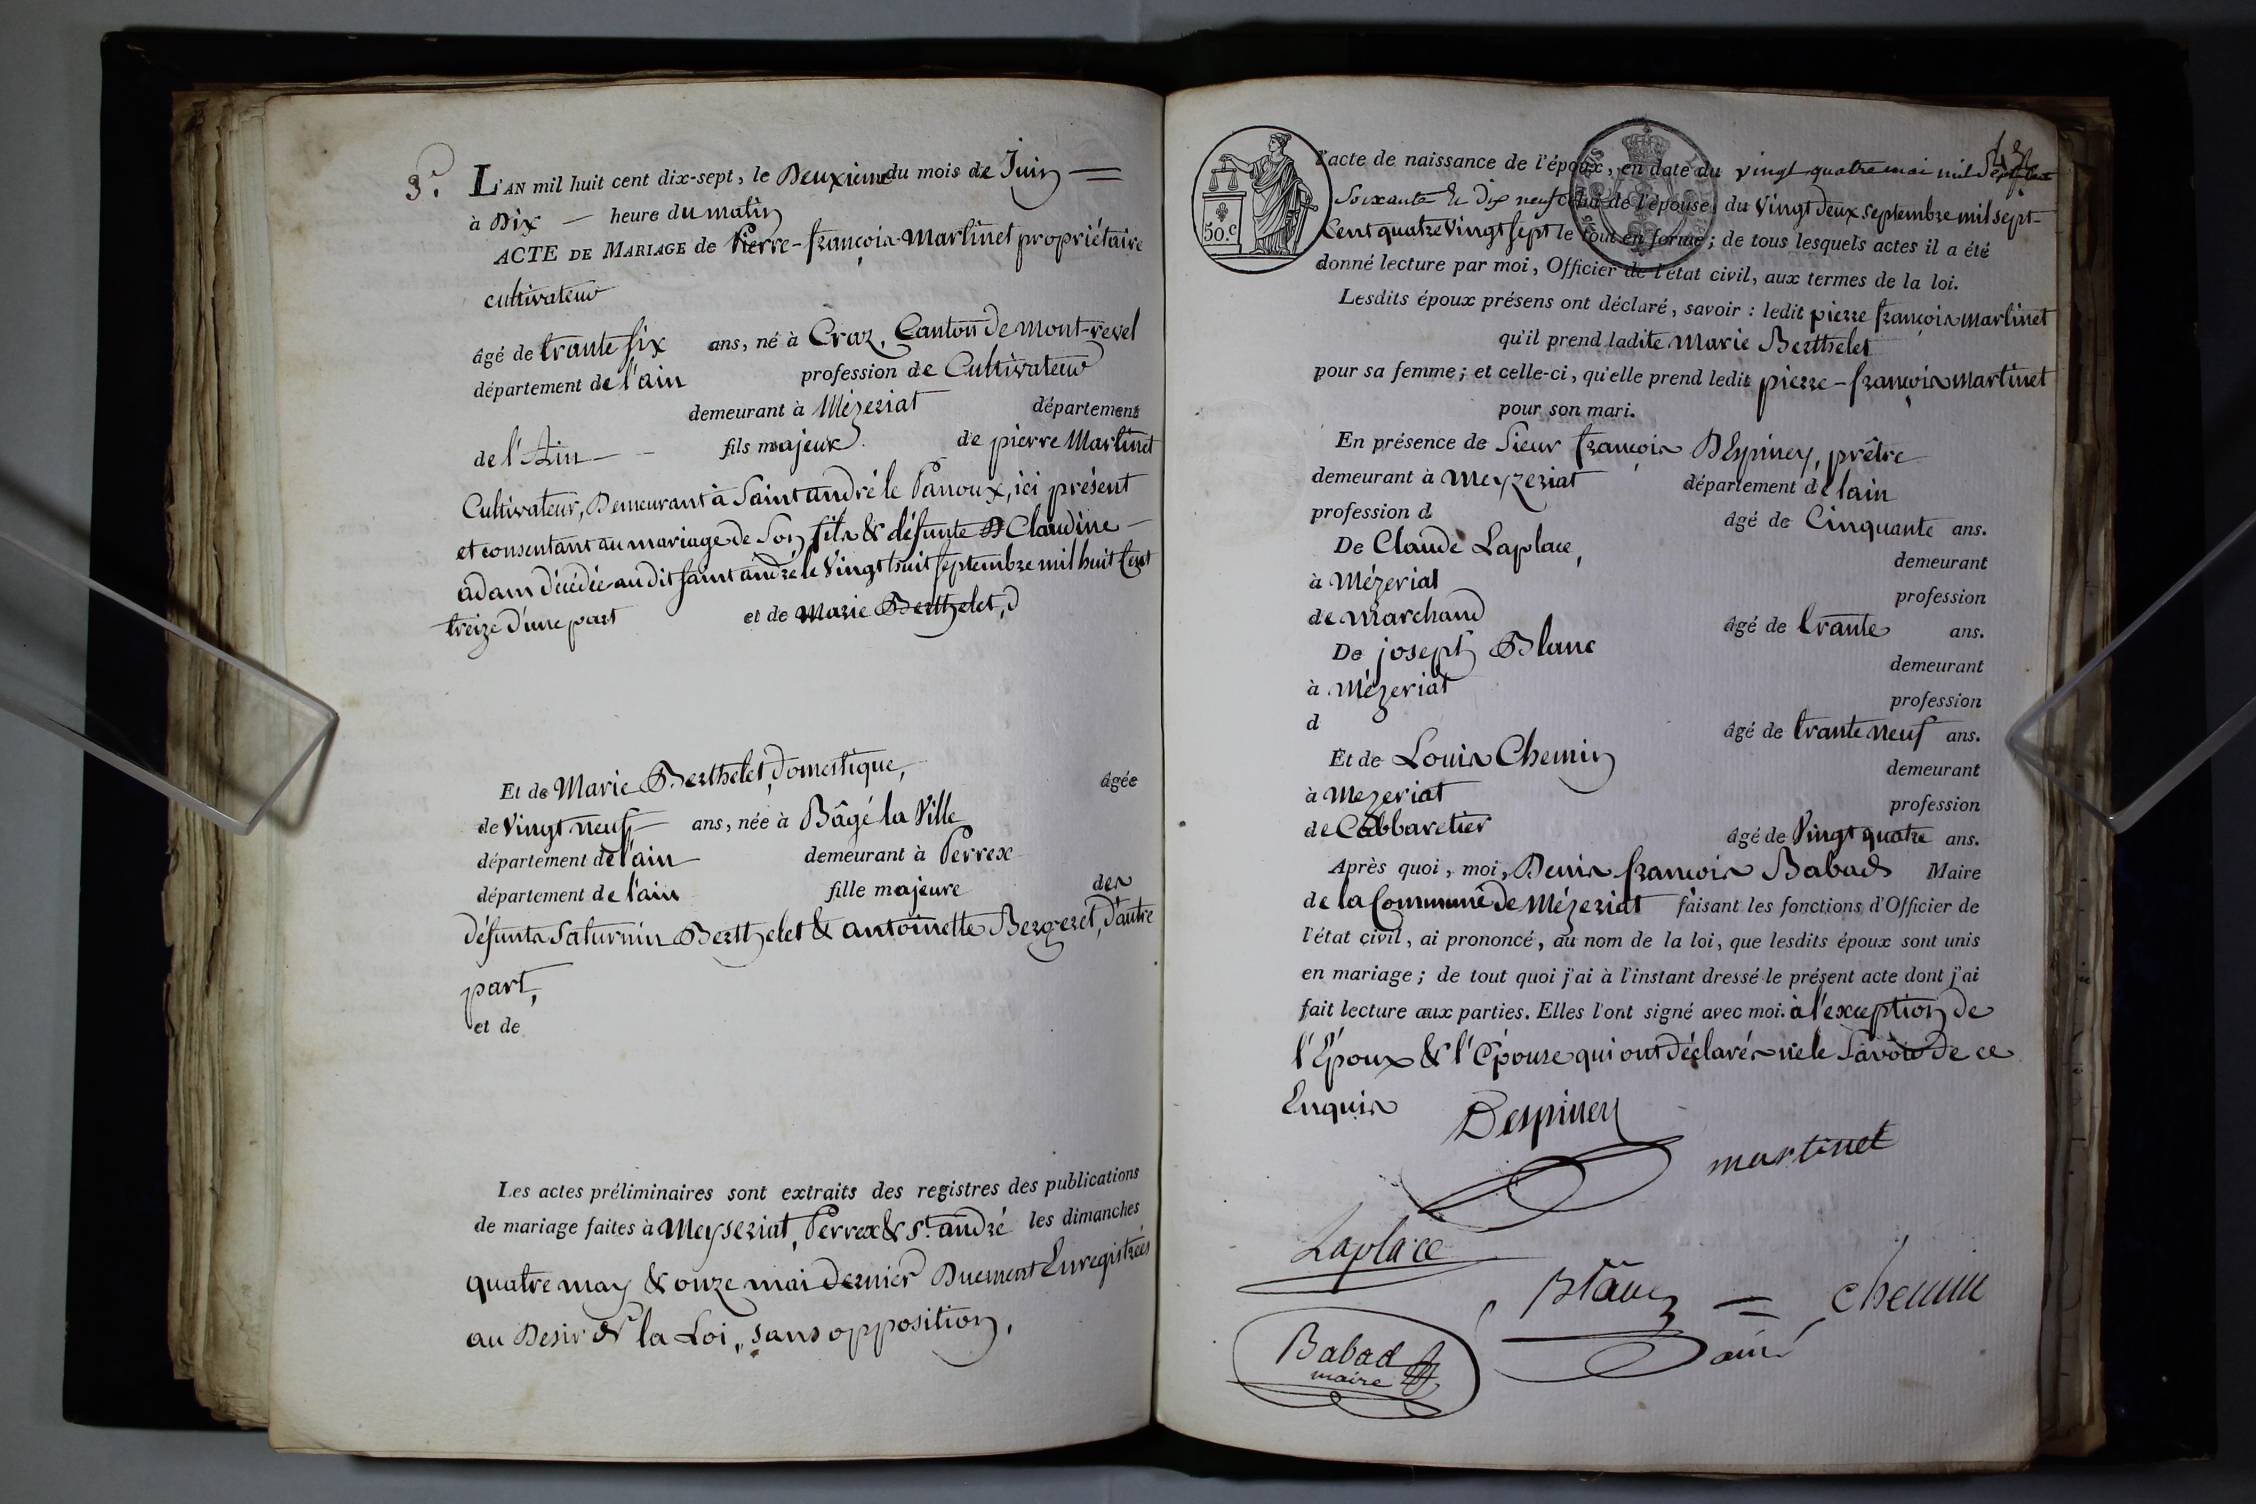 3.e L'AN mil huit cent dix-sept, le Deuxieme du mois de Juin =
à Dix — heure du matin
ACTE DE MARIAGE de Pierre-françois Martinet propriétaire
cultivateur
âgé de trante six ans, né à Craz, Canton de Mont-revel
département de l'ain profession de Cultivateur
demeurant à Mézeriat département
de l'Ain — fils majeur de pierre Martinet
Cultivateur, Demeurant à Saint andré le Panoux, ici présent
et consentant au mariage de Son fils & défunte Claudine —
adam décédée au dit saint andré le Vingt huit septembre mil huit Cent
treize d'une part et de Marie Berthelet, d
Et de Marie Berthelet, domestique, âgée
de Vingt neuf — ans, née à Bâgé la Ville
département de l'ain demeurant à Perrex
département de l'ain fille majeure des
défunts Saturnin Berthelet & antoinette Bergeret, d'autre
part,
et de
Les actes préliminaires sont extraits des registres des publications
de mariage faites à Meyseriat, Perrex & St. andré les dimanches
quatre may & onze mai dernier Duement Enregistrées
au Desir de la Loi, sans opposition,
50.c
l'acte de naissance de l'époux, en date du vingt quatre mai mil Sept Cent
Soixante & dix neuf celui de l'épouse, du Vingt deux septembre mil sept
Cent quatre Vingt sept le tout en forme; de tous lesquels actes il a été
donné lecture par moi, Officier de l'état civil, aux termes de la loi.
Lesdits époux présens ont déclaré, savoir : ledit pierre françois martinet
qu'il prend ladite Marie Berthelet
pour sa femme; et celle-ci, qu'elle prend ledit pierre-françois martinet
pour son mari.
En présence de Sieur françois DEspiney, prêtre
demeurant à Meyzeriat département de lain
profession d âgé de Cinquante ans.
De Claude Laplace, demeurant
à Mézeriat profession
de marchand âgé de trante ans.
De joseph Blanc demeurant
à Mézeriat profession
d âgé de trante neuf ans.
Et de Louis Chemin demeurant
à Mezeriat profession
de Cabbaretier âgé de Vingt quatre ans.
Après quoi, moi, Denis françois Babad Maire
de la Commune de Mézeriat faisant les fonctions d'Officier de
l'état civil, ai prononcé, au nom de la loi, que lesdits époux sont unis
en mariage; de tout quoi j'ai à l'instant dressé le présent acte dont j'ai
fait lecture aux parties. Elles l'ont signé avec moi. à l'exception de
l'Epoux & l'Epouse qui ont déclarés ne le Savoir de ce
Enquis
Despiney
martinet
Laplace
Blanc = chemin
ainé
Babad
maire